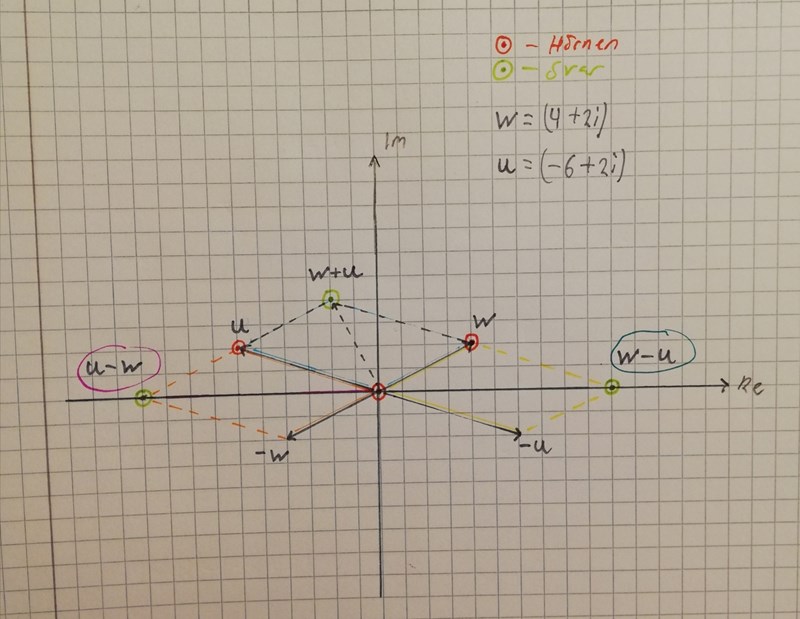 - Hörnen
- Svar
w = (4+2i)
u = (-6+2i)
Im
w+u
u
w
u-w
w-u
Re
-w
-u